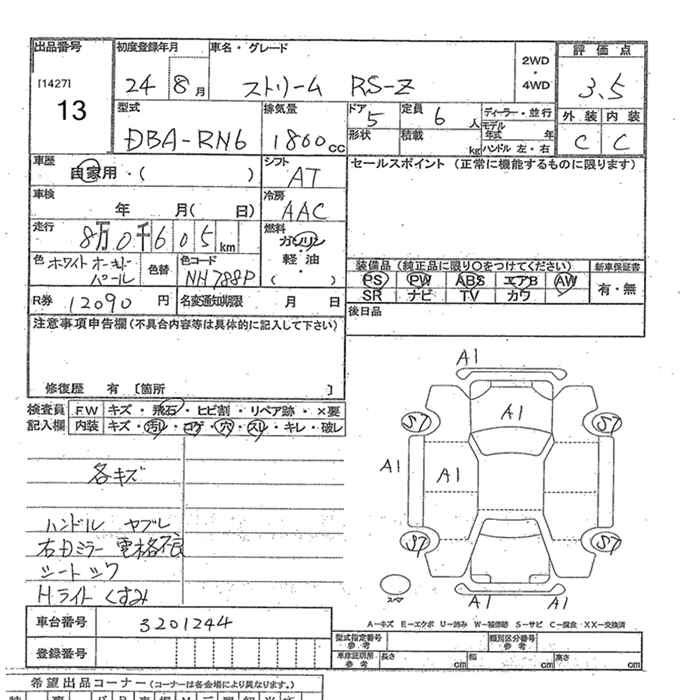 出品番号 初度登録年月 車名・グレード 2WD ・ 4WD 評価点
[1427] 13 24 8月 ストリーム RS-Z 3.5
型式 排気量 ドア 5 定員 6人 ディーラー・並行 外装 内装
DBA-RN6 1800cc 形状 積載 kg モデル年式 年 ハンドル 左・右 C C
車歴 自家用・( ) シフト AT セールスポイント (正常に機能するものに限ります)
車検 年 月( 日) 冷房 AAC
走行 8万0千605km 燃料 ガソリン・軽油 ( )
色 ホワイトオーキッドパール 色替 色コード NH788P
装備品 (純正品に限り〇をつけてください) 新車保証書
PS PW ABS エアB AW 有・無
SR ナビ TV カワ
R券 12090円 名変通知期限 月 日 後日品
注意事項申告欄(不具合内容等は具体的に記入して下さい)
修復歴 有 [箇所 ]
検査員 FW キズ・飛石・ヒビ割・リペア跡・×要
記入欄 内装 キズ・汚レ・コゲ・穴・スレ・キレ・破レ
A1
A1
S7 S7
A1 A1
S7 S7
A1 A1
スペア
各キズ
ハンドル ヤブレ
右ドミラー 電格不良
シート シワ
Hライト くすみ
A-キズ E-エクボ U-凹み W-補修跡 S-サビ C-腐食 XX-交換済
車台番号 3201244
登録番号
型式指定番号 参考 類別区分番号 参考
車庫証明用 参考 長さ cm 幅 cm 高さ cm
希望出品コーナー (コーナーは各会場により異なります。)